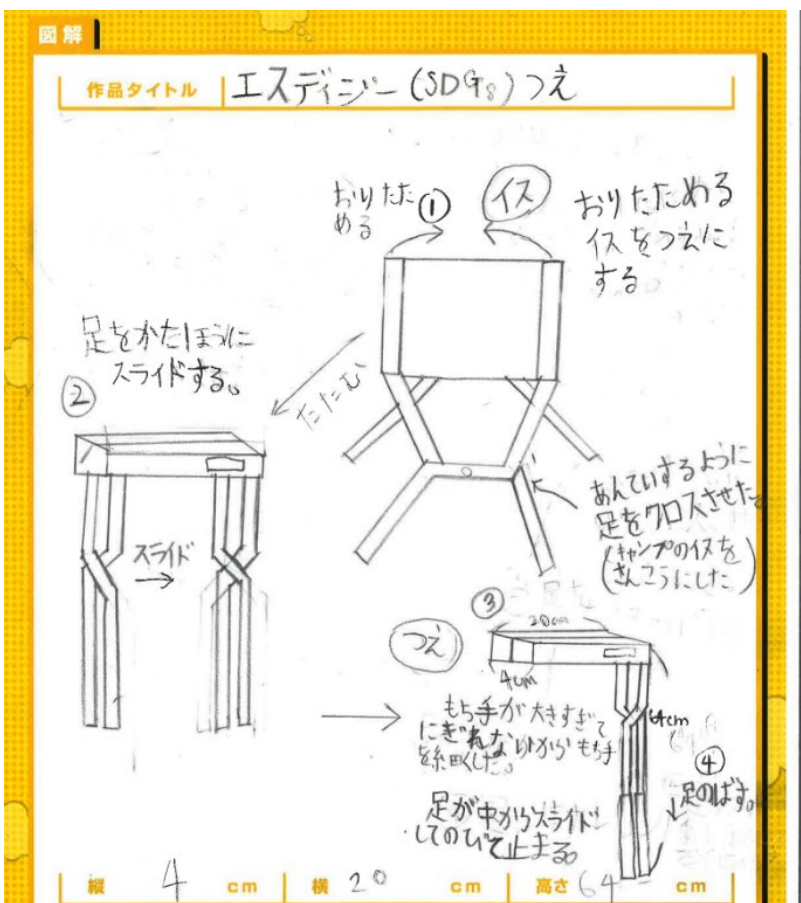 図解
作品タイトル エスディジー(SDGs)つえ
おりたた
める
①
イス
おりたためる
イスをつえに
する
足をかたほうに
スライドする。
②
たたむ
スライド
あんていするように
足をクロスさせた。
(キャンプのイスを
さんこうにした)
③
20cm
つえ
4cm
64cm
もち手が大きすぎて
にぎれないから もち手
を細くした。
④
足のばす。
足が中からスライド
してのびて止まる。
縦 4 cm 横 20 cm 高さ 64 cm